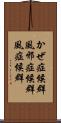 かぜ症候群
風邪症候群
風症候群